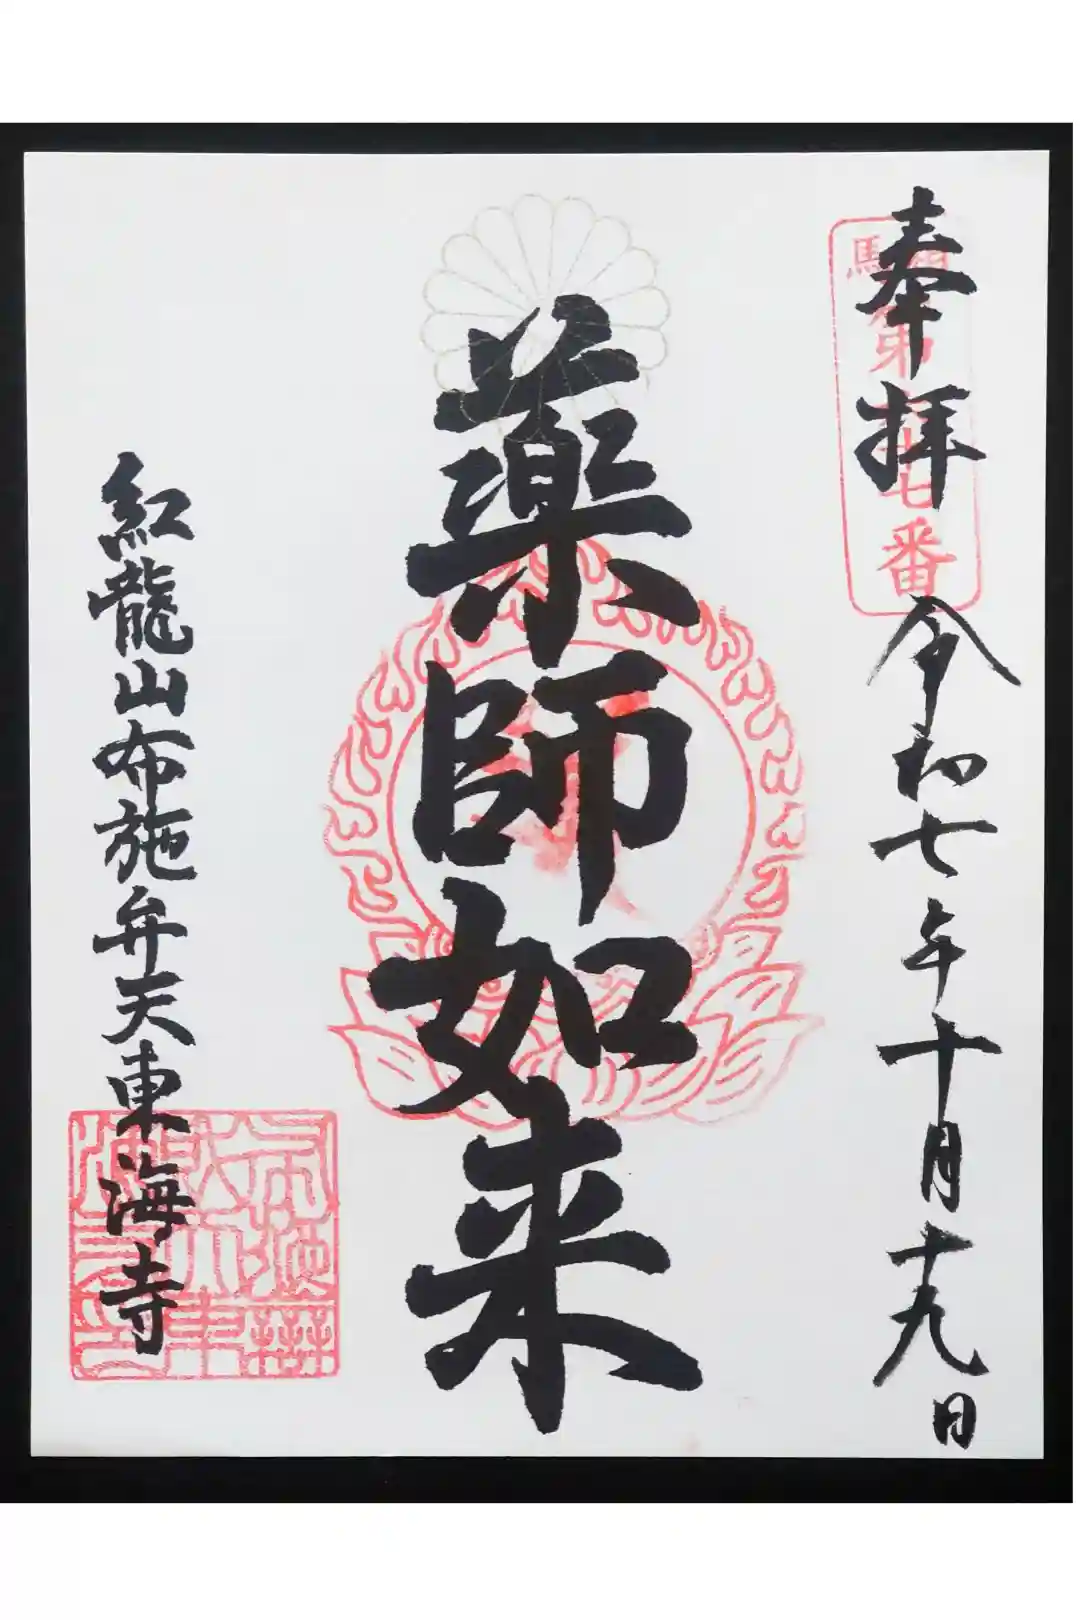 奉拝
第
七番
令和七年十月十九日
薬師如来
紅龍山布施弁天東海寺